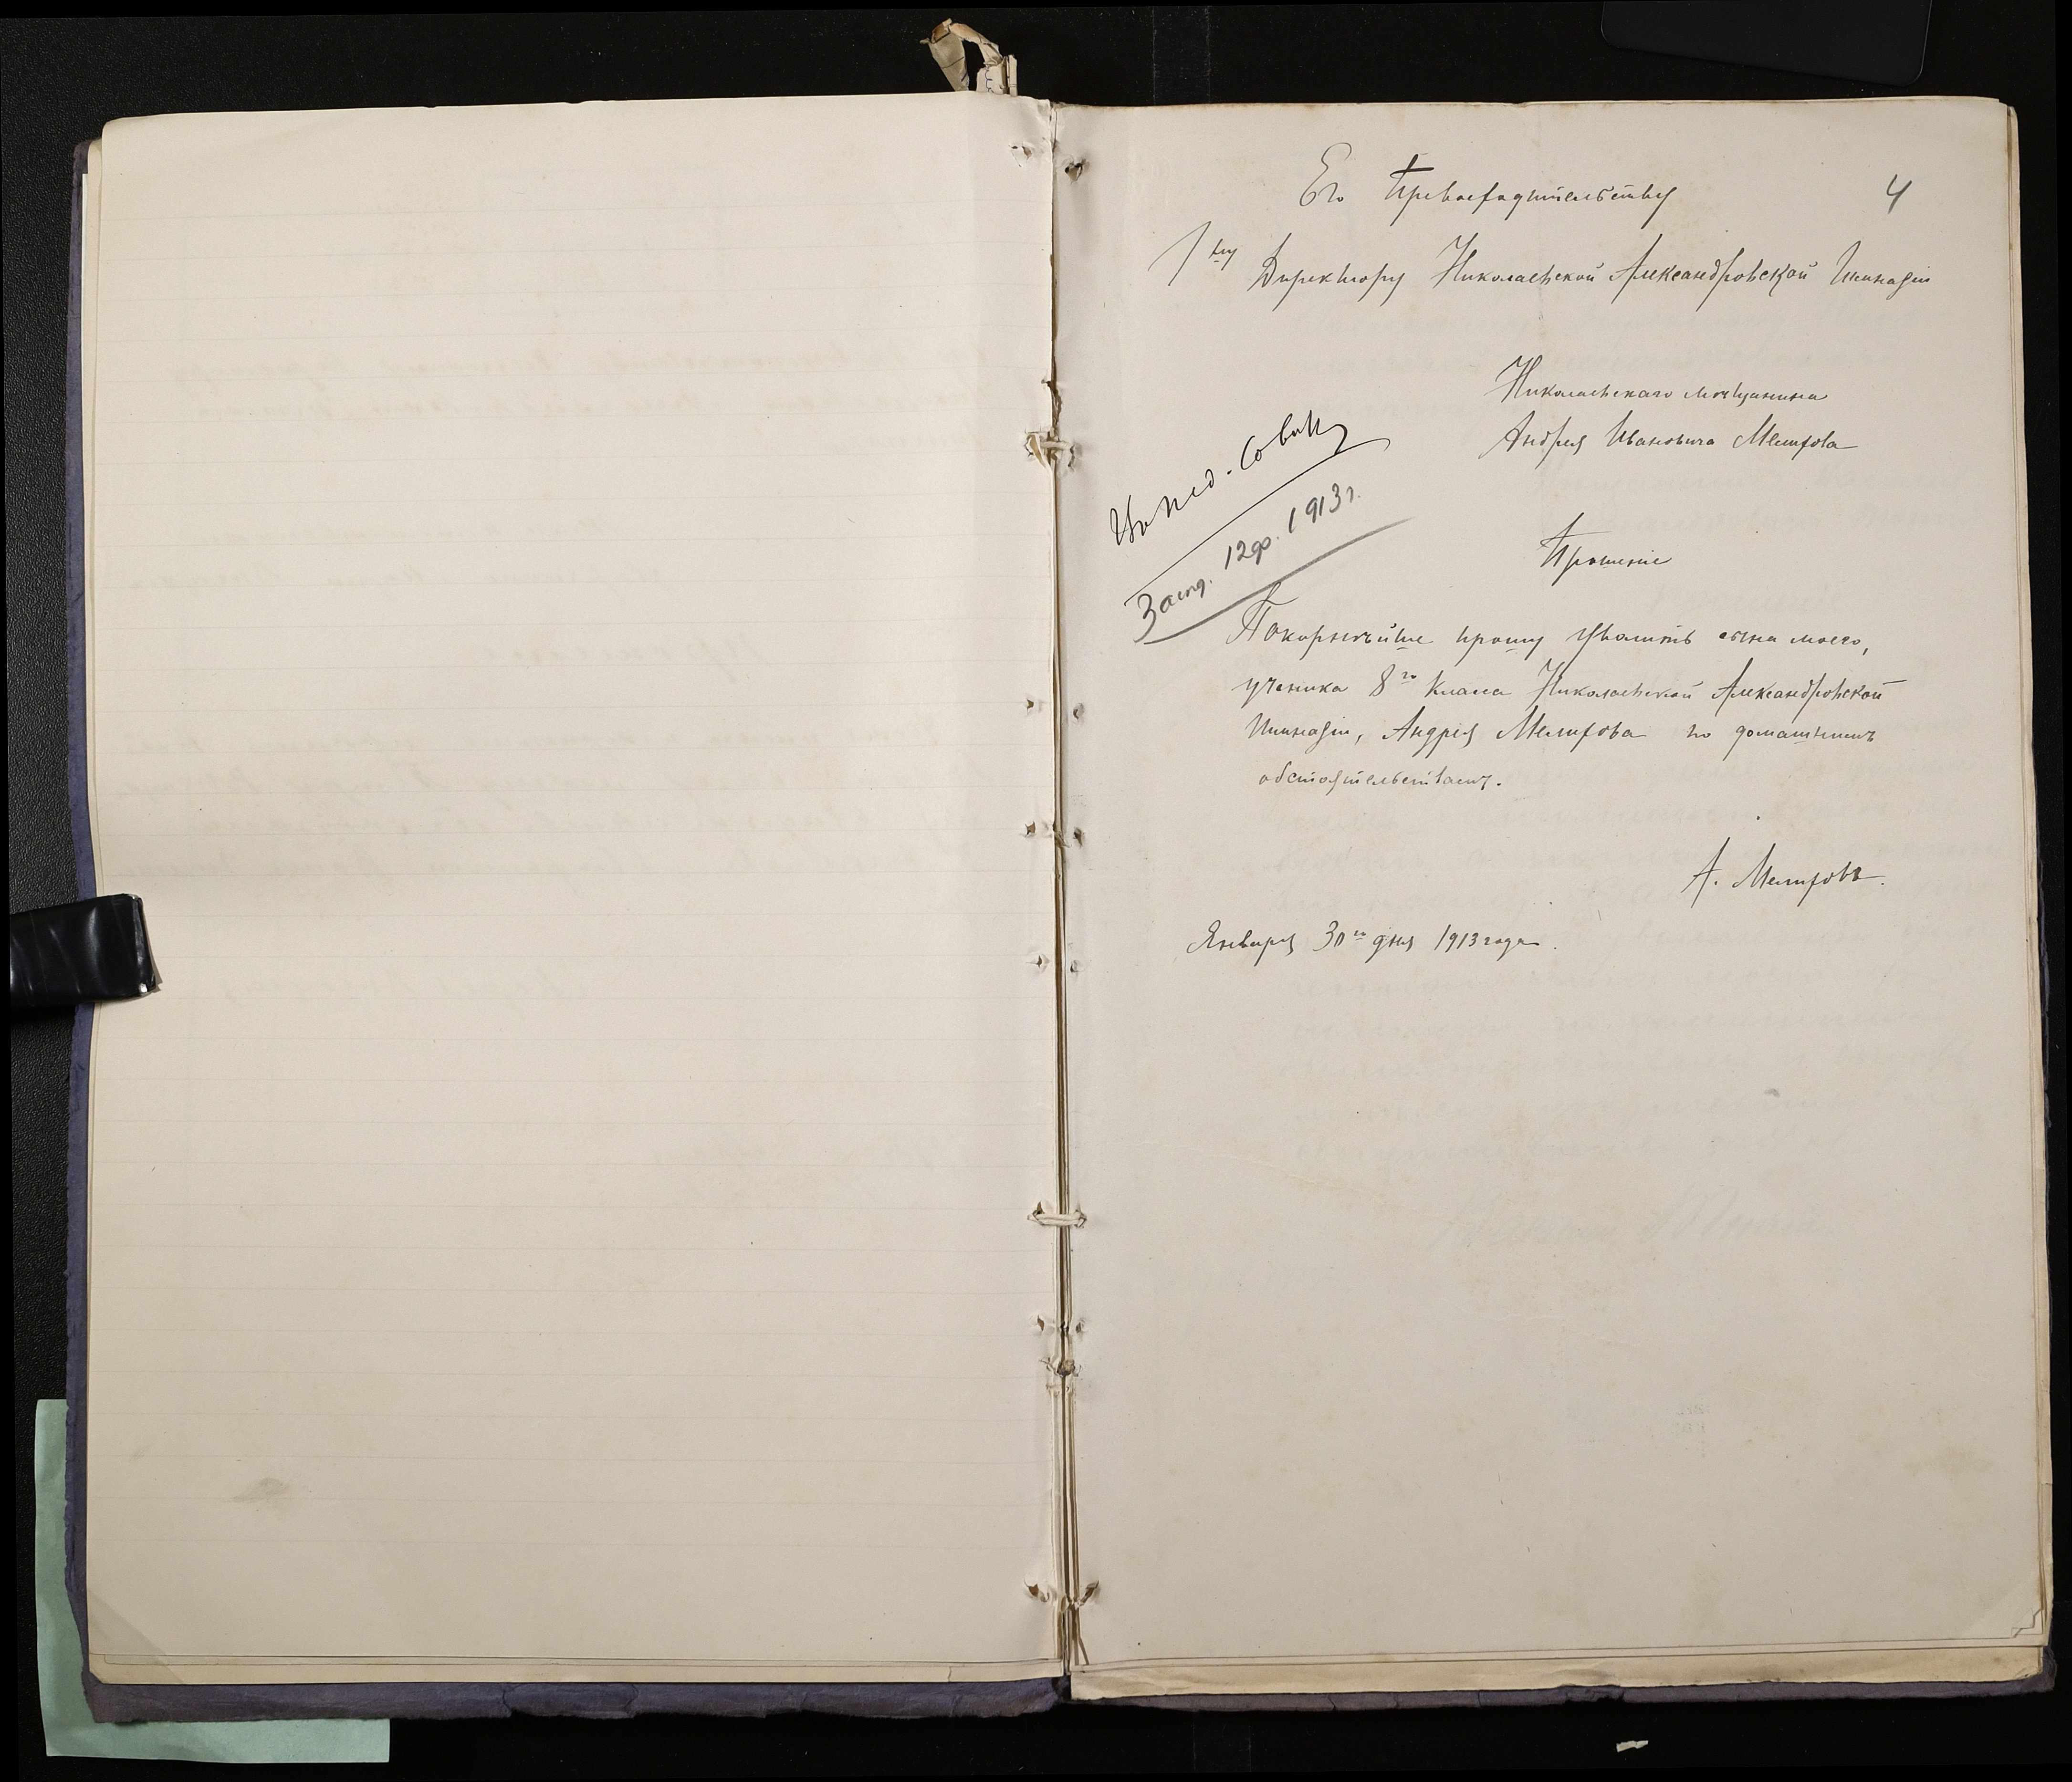 4
Его Превосходительству
Гну Директору Николаевской Александровской Гимназіи
Николаевскаго мѣщанина
Андрея Ивановича
Въ Пед. Совѣтъ
Засѣд. 12 ф. 1913 г.
Прошеніе
Покорнѣйше прошу уволить сына моего,
ученика 8го класса Николаевской Александровской
Гимназіи, Андрея по домашнимъ
обстоятельствамъ.
А.
Января 30го дня 1913 года.